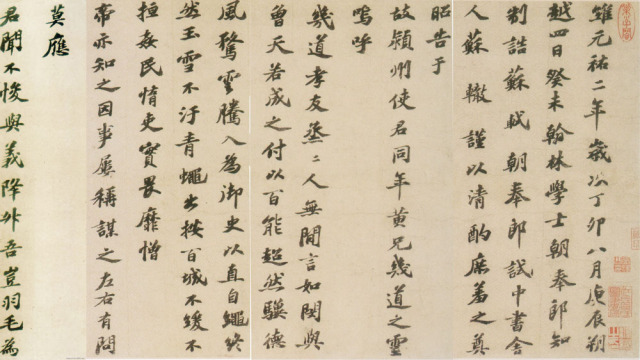 維元祐二年歲次丁卯八月庚辰朔
越四日癸未翰林學士朝奉郎知
制誥蘇軾朝奉郎試中書舍
人蘇轍謹以清酌庶羞之奠
昭告于
故潁州使君同年黃兄幾道之靈
嗚呼
幾道孝友烝二人無間言如閔與
曾天若成之付以百能超然驥德
風騖雲騰入為御史以直自繩終
然玉雪不汙青蠅出按百城不緩不
揯姦民惰吏實畏靡憎
帝亦知之因事屢稱謀之左右有問
莫應
君聞不悛與義降升吾豈羽毛為